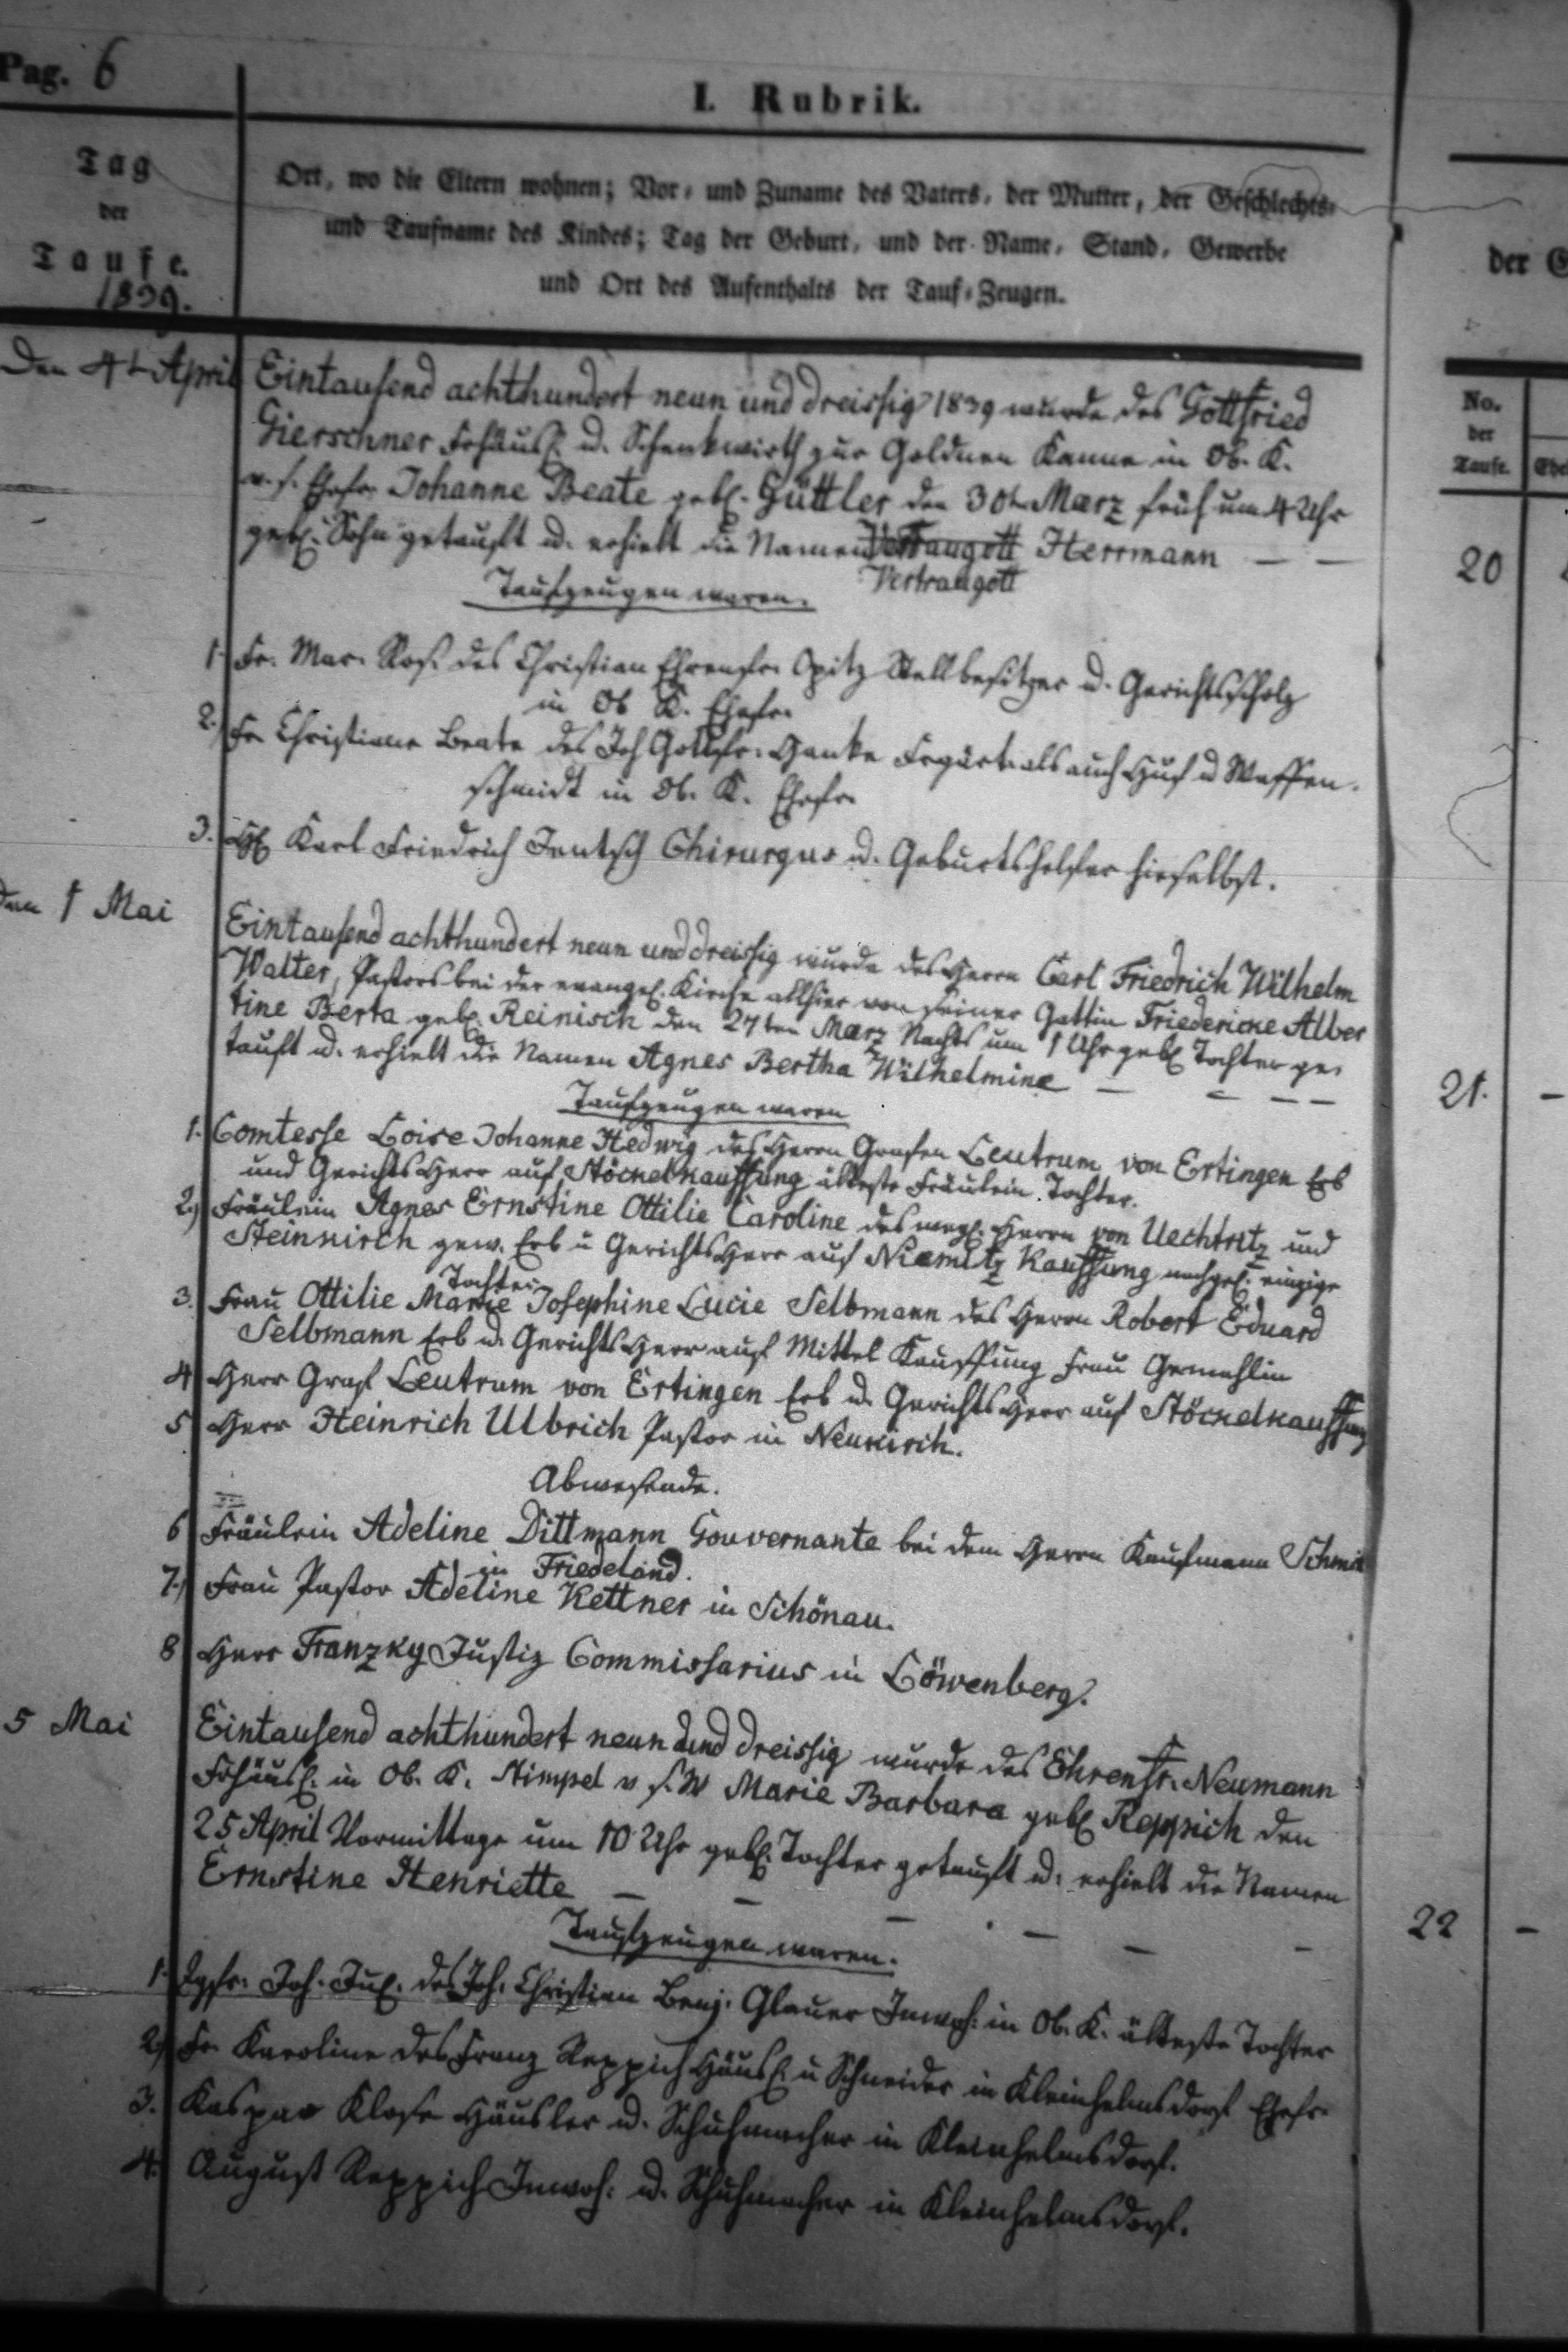 Pag. 6
I. Rubrik.
Tag
der
Taufe.
1839.
Ort, wo die Eltern wohnen; Vor- und Zuname des Vaters, der Mutter, der Geschlechts-
und Taufname des Kindes; Tag der Geburt, und der Name, Stand, Gewerbe
und Ort des Aufenthalts der Tauf-Zeugen.
der
No.
der
Taufe.
Den 4t April
Eintausend achthundert neun und dreissig 1839 wurde des Gottfried
Gierschner Frhäusl. u. Schenkwirth zur Goldnen Kanne in Ob. K.
v. s. Ehefr. Johanne Beate geb. Güttler den 30t Maerz früh um 4 Uhr
geb. Sohn getauft u. erhielt die Namen Vertraugott Herrmann — —
Vertraugott
20
Taufzeugen waren.
1. Fr. Mar. Ros. des Christian Ehrenfr. Opitz Stellbesitzer u. Gerichtsscholz
in Ob K. Ehefr.
2.) Fr. Christiane Beate des Joh Gottfr. Hanke Frgärt. als auch Huf u Waffen-
schmidt in Ob. K. Ehefr.
3. H. Karl Friedrich Jentsch Chirurgus u. Geburtshelfer hieselbst.
den 1 Mai
Eintausend achthundert neun und dreissig wurde des Herrn Carl Friedrich Wilhelm
Walter, Pastors bei der evangel. Kirche allhier von seiner Gattin Friedericke Alber
tine Berta geb. Reinisch den 27ten Maerz Nachts um 1 Uhr geb. Tochter ge-
tauft u. erhielt die Namen Agnes Bertha Wilhelmine — — — —
21. –
Taufzeugen waren
1. Comtesse Loise Johanne Hedwig des Herrn Grafen Leutrum von Ertingen Erb
und Gerichts Herr auf Stöckelkauffung älteste Fräulein Tochter.
2.) Fräulein Agnes Ernstine Ottilie Caroline des Herrn von Uechtritz und
Steinkirch gew. Erb u Gerichts Herr auf Niemitz Kauffung nachgel. einzige
Tochter
3. Frau Ottilie Marie Josephine Lucie Selbmann des Herrn Robert Eduard
Selbmann Erb u. Gerichts Herr auf Mittel Kauffung Frau Gemahlin
4 Herr Graf Leutrum von Ertingen Erb u. Gerichts Herr auf Stöckelkauffung
5 Herr Heinrich Ulbrich Pastor in Neukirch.
Abwesende.
6 Fräulein Adeline Dittmann Gouvernante bei dem Herrn Kaufmann Schmit
in Friedeland.
7.) Frau Pastor Adeline Kettner in Schönau.
8 Herr Franzky Justiz Commissarius in Löwenberg.
5 Mai
Eintausend achthundert neun und dreissig wurde des Ehrenfr. Neumann
Frhäusl. in Ob. K. Stimpel v s. W Marie Barbara geb. Reppich den
25 April Vormittags um 10 Uhr geb. Tochter getauft u. erhielt die Namen
Ernstine Henriette — — — — — —
22 –
Taufzeugen waren.
1. Igfr. Joh. Jul. des Joh. Christian Benj. Glauer Inwoh. in Ob. K. älteste Tochter
2.) Fr. Karoline des Franz Reppich Häusl. u Schneider in Kleinhelmsdorf Ehefr.
3. Kaspar Klose Häusler u. Schuhmacher in Kleinhelmsdorf.
4. August Reppich Inwoh. u. Schuhmacher in Kleinhelmsdorf.